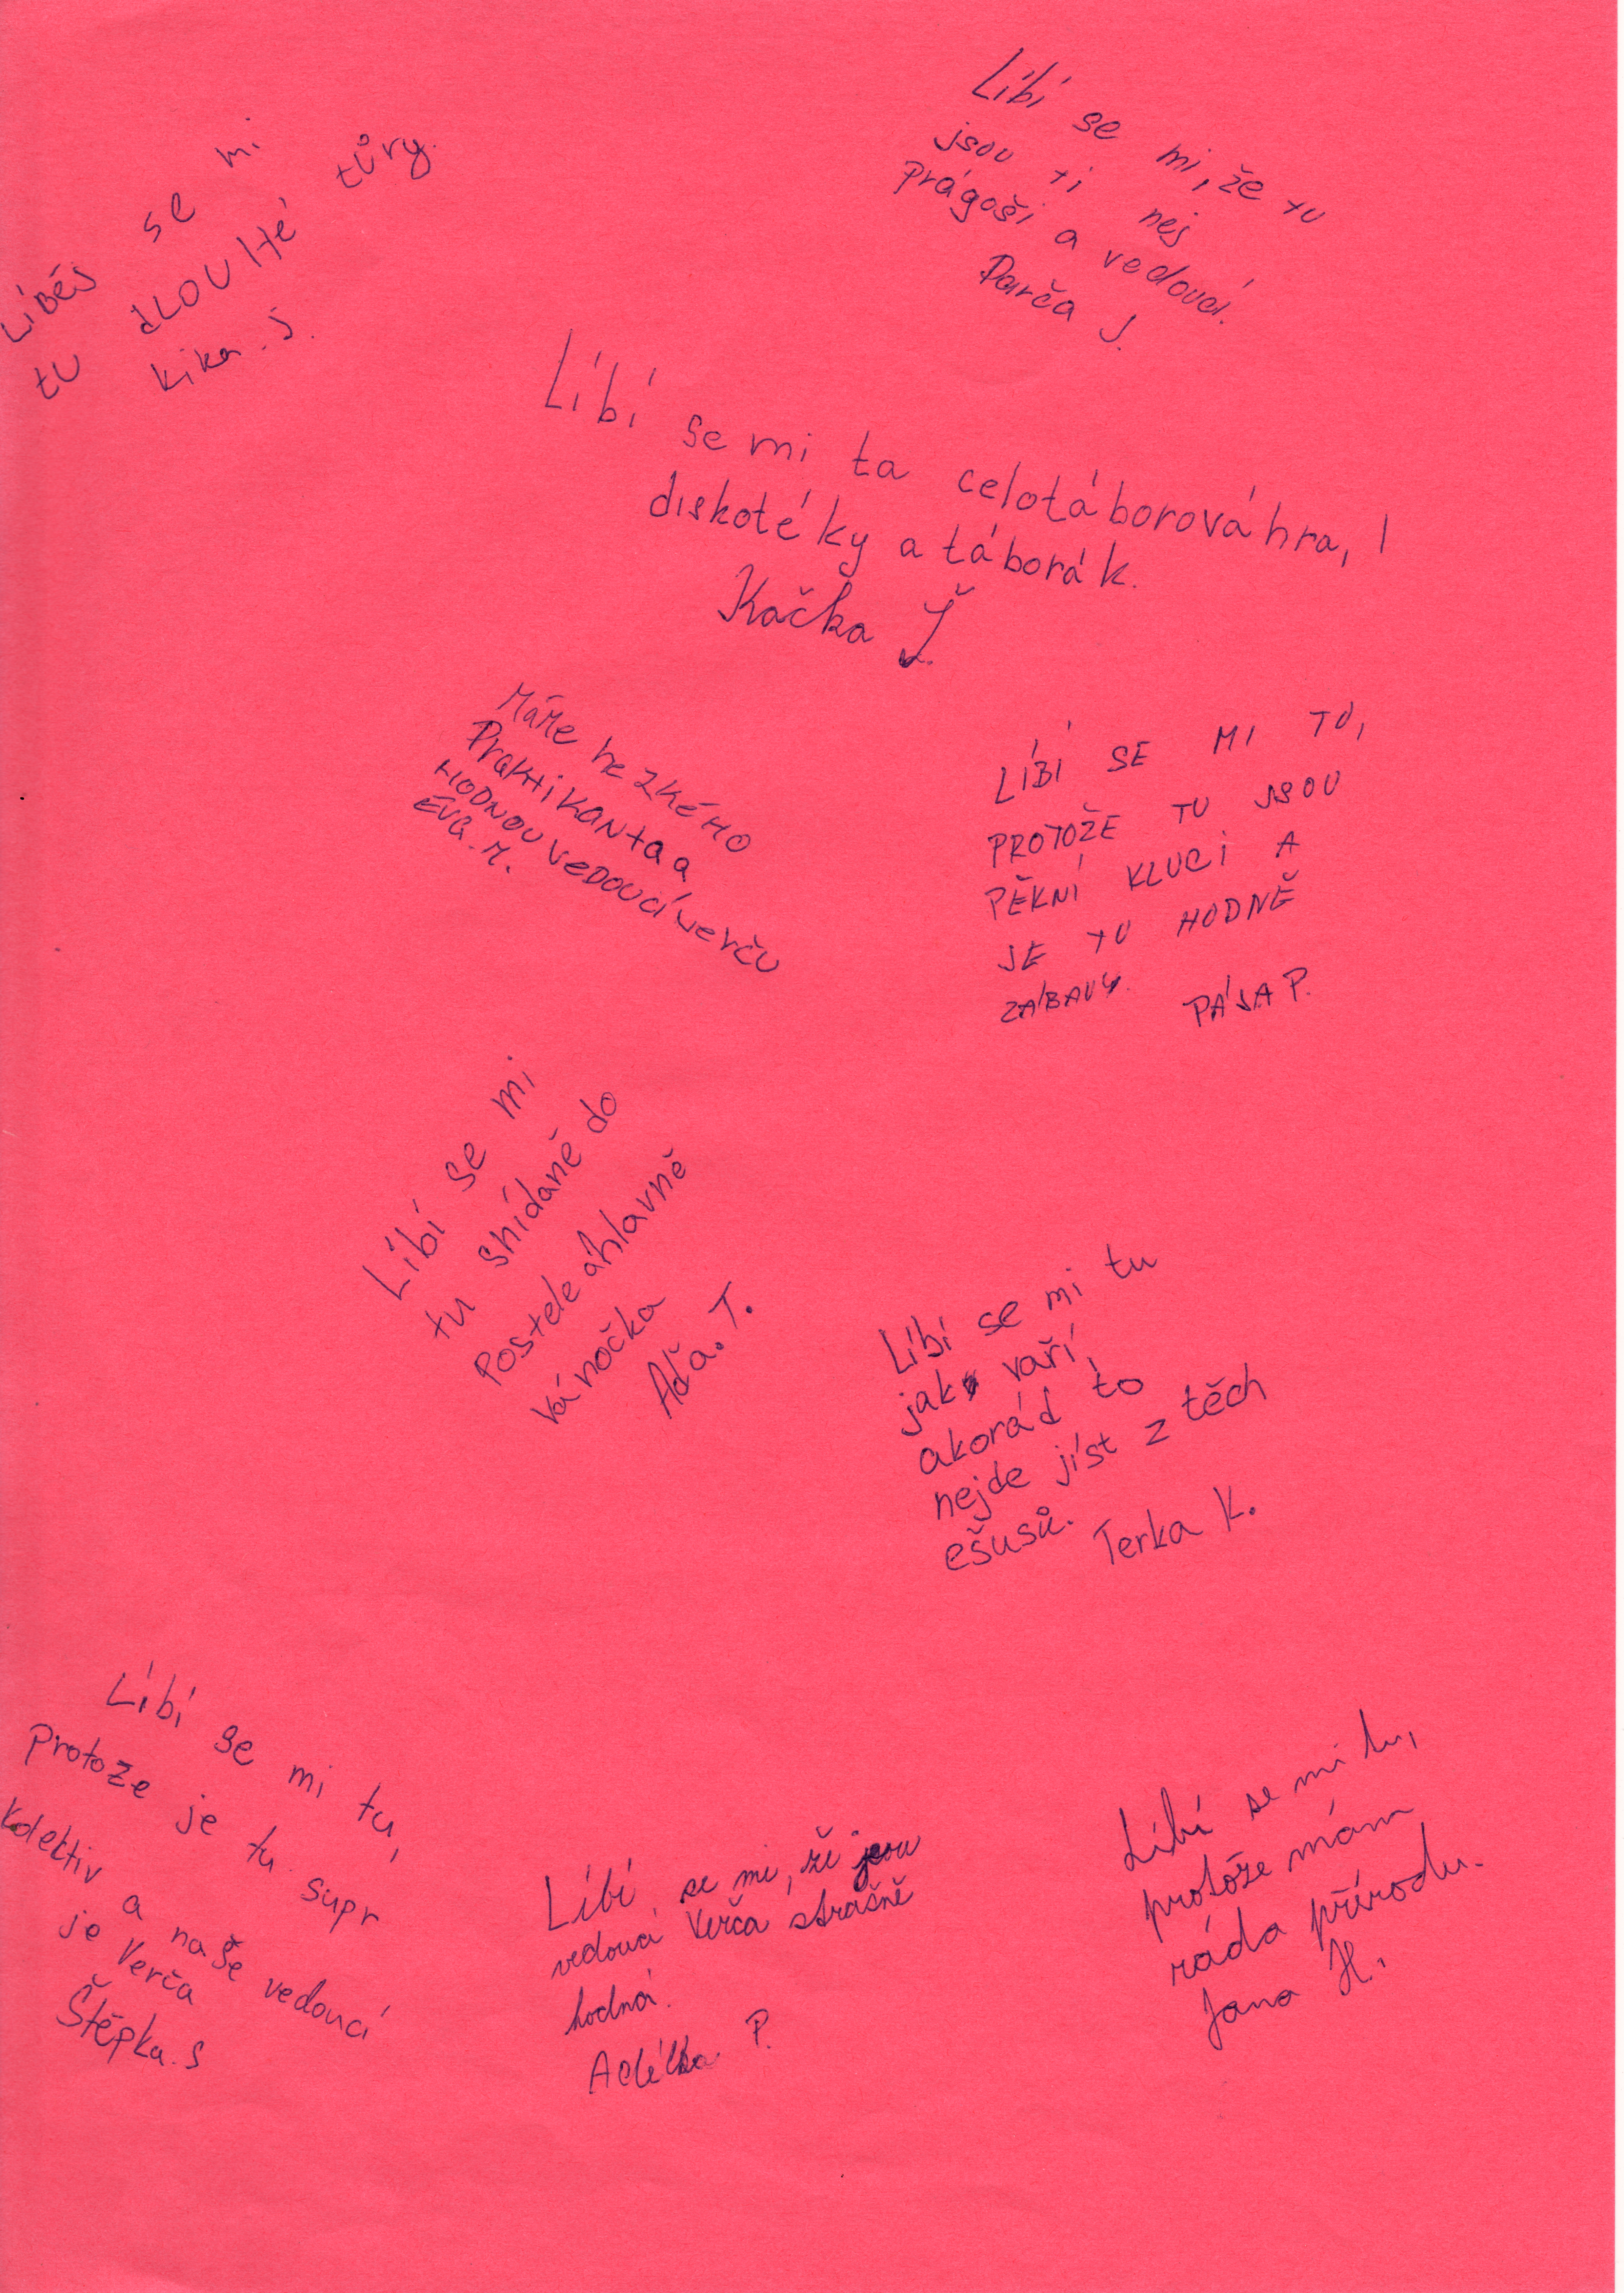 LíBéS se mi
tU dLOUHé tůry.
kika. J.
Líbí se mi, že tu
jsou ti nej
prágoši a vedoucí.
Darča J.
Líbí se mi ta celotáborová hra,
diskotéky a táborák.
Kačka
Máme hezkého
Praktikanta a
HODNOU VeDOUCí Verču
Éva. M.
LÍBÍ SE MI TU,
PROTOŽE TU JSOU
PĚKNÍ KLUCI A
JE TU HODNĚ
ZÁBAVY.
PÁJA P.
Líbí se mi
tu snídaně do
Postele a hlavně
vánočka
Aďa. T.
Líbí se mi tu
jak vaří,
akorád to
nejde jíst z těch
ešusů.
Terka K.
Líbí se mi tu,
Protoze je tu supr
kolektiv a naše vedoucí
je Verča
Štěpka. S
Líbí se mi, že jsou
vedoucí Verča strašně
hodná.
Adélka P.
Líbí se mi tu,
protože mám
ráda přírodu.
Jana H.